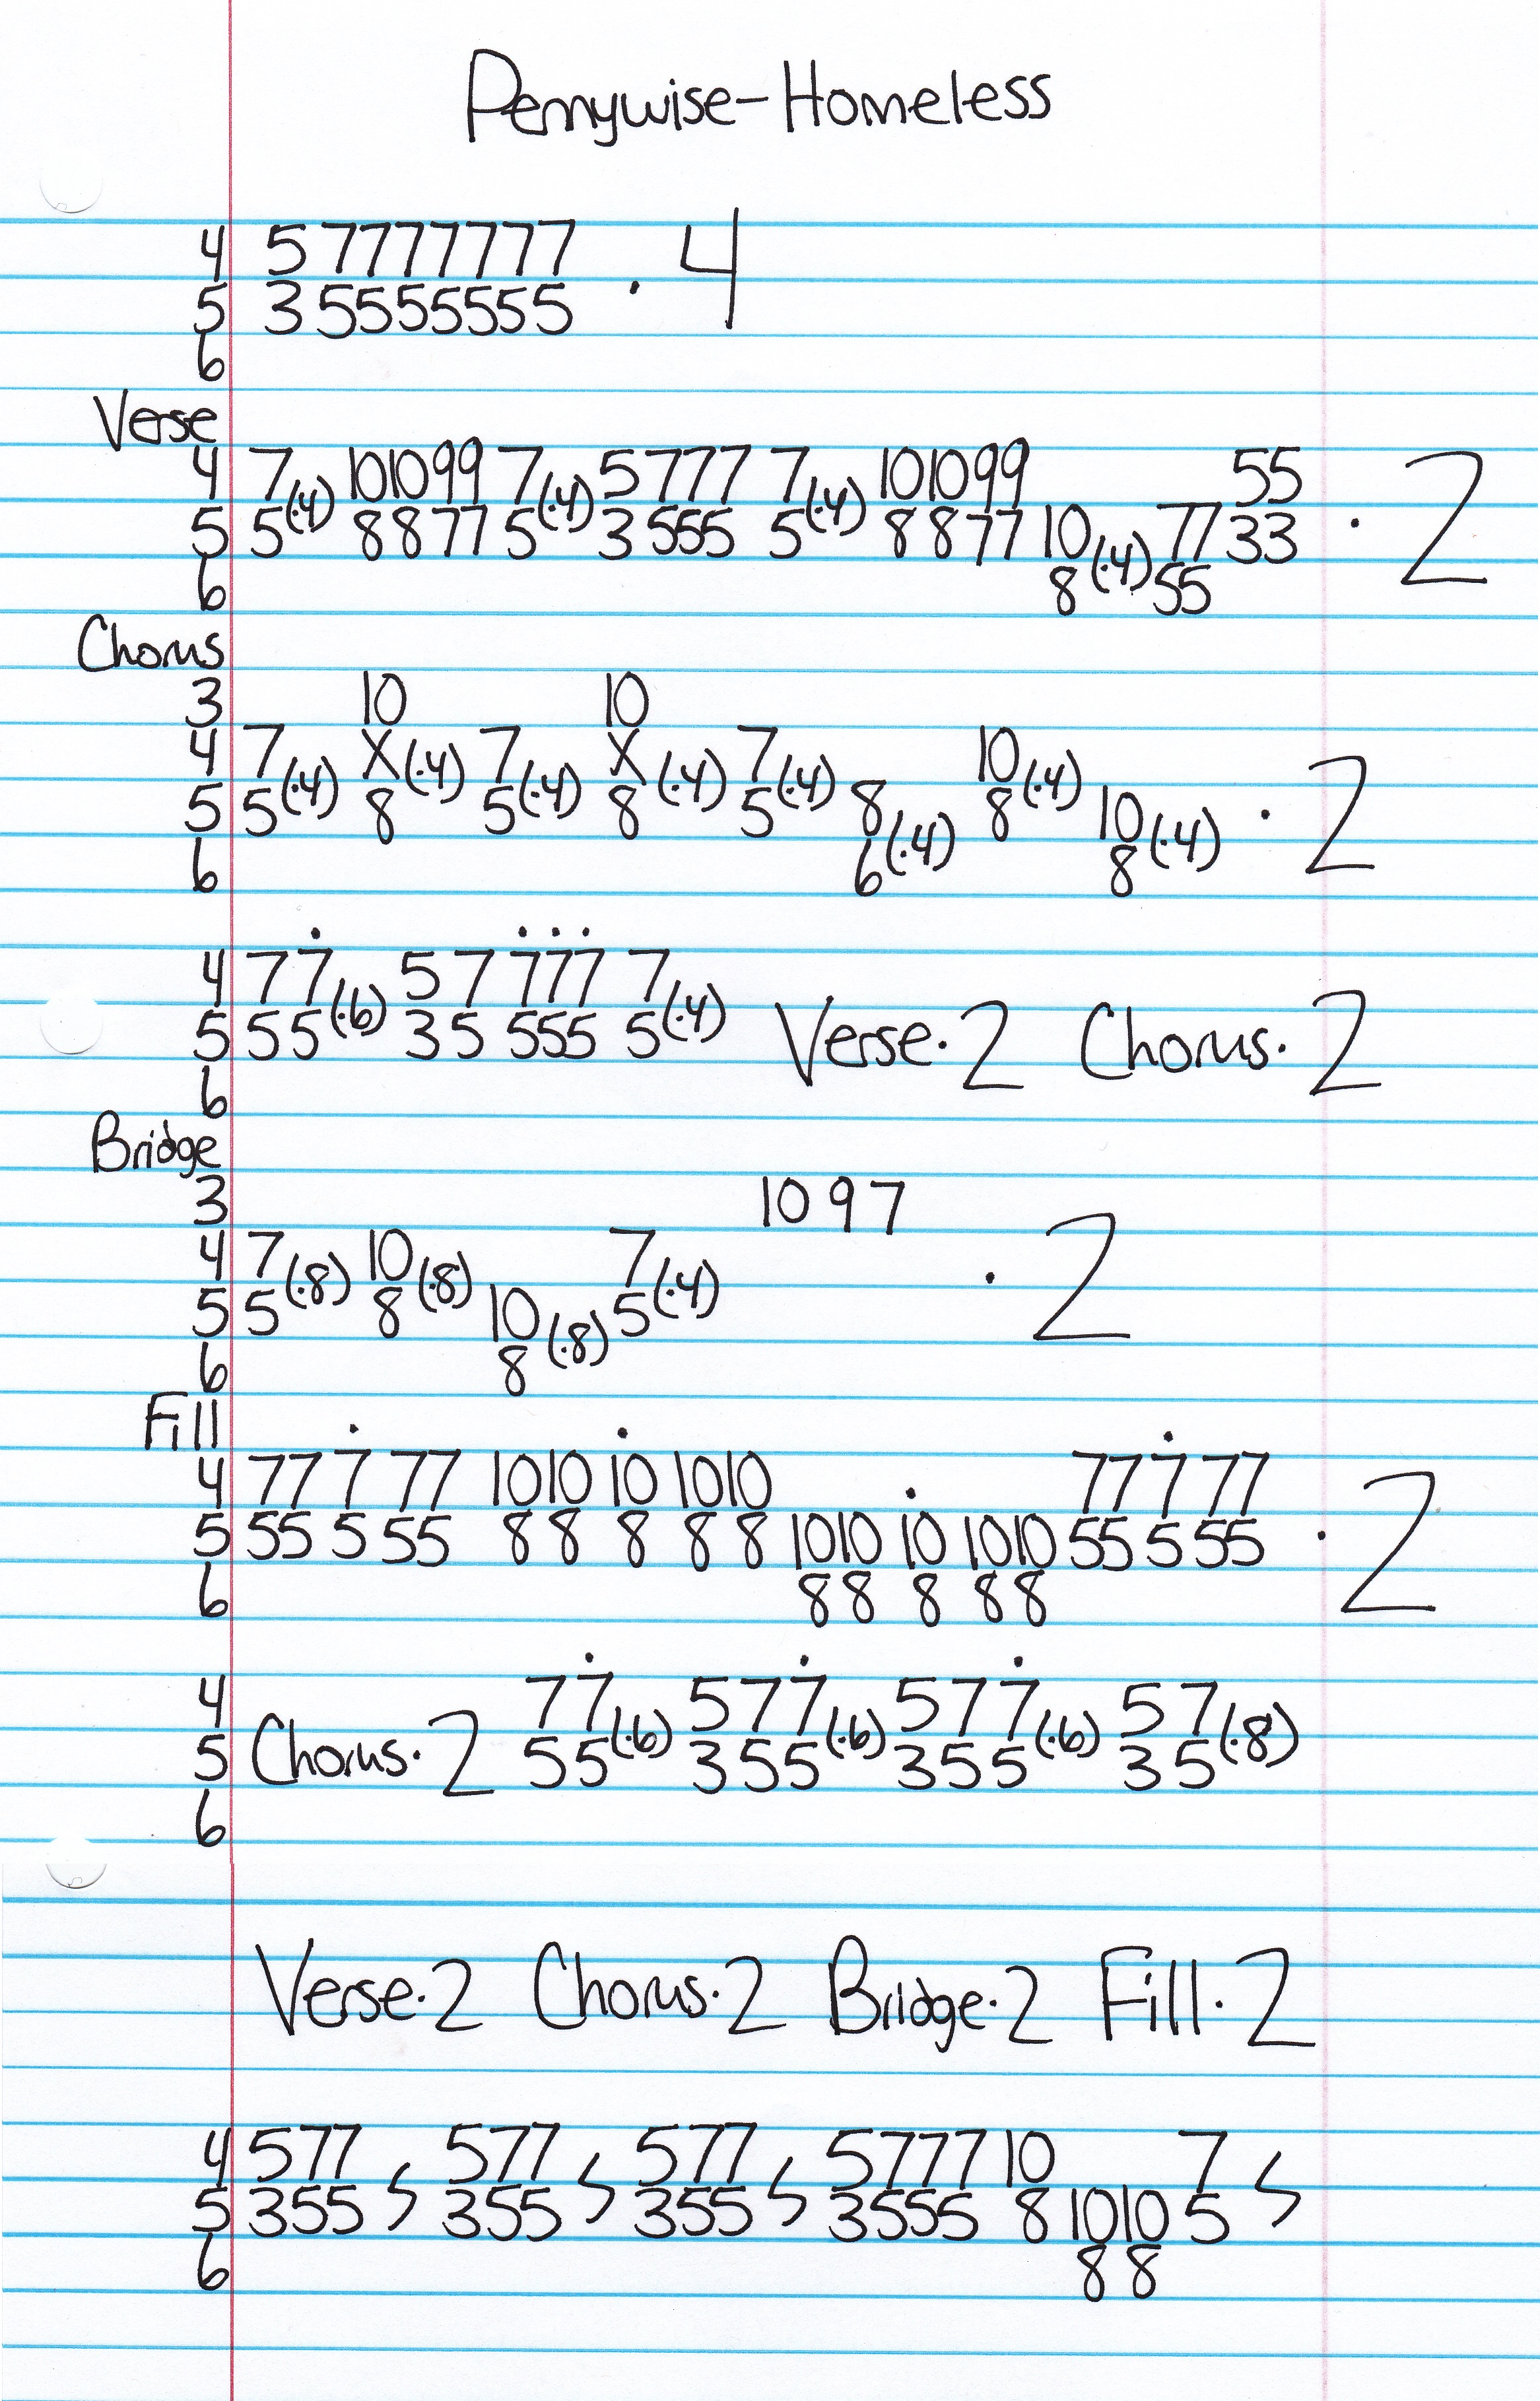 Pennywise-Homeless
4 5 7777777
5 3 5555555 · 4
6
Verse
4 7 10 10 9 9 7 5 777 7 10 10 9 9 55
5 5(·4) 8 8 7 7 5(·4) 3 555 5(·4) 8 8 7 7 10 77 33 · 2
6 8(·4) 55
Chorus
3 10 10
4 7 X 7 X 7 10
5 5(·4) 8(·4) 5(·4) 8(·4) 5(·4) 8 8(·4) 10 · 2
6 6(·4) 8(·4)
4 7 7̇ 5 7 7̇7̇7̇ 7
5 5 5(·6) 3 5 555 5(·4) Verse·2 Chorus·2
6
Bridge
3 10 9 7
4 7 10 7
5 5(·8) 8(·8) 10 5(·4) · 2
6 8(·8)
Fill
4 77 7̇ 77 10 10 1̇0 10 10 77 7̇ 77
5 55 5 55 8 8 8 8 8 10 10 1̇0 10 10 55 5 55 · 2
6 8 8 8 8 8
4 7 7̇ 5 7 7̇ 5 7 7̇ 5 7
5 Chorus·2 5 5(·6) 3 5 5(·6) 3 5 5(·6) 3 5(·8)
6
Verse·2 Chorus·2 Bridge·2 Fill·2
4 577 577 577 5777 10 7
5 355 355 355 3555 8 10 10 5
6 8 8